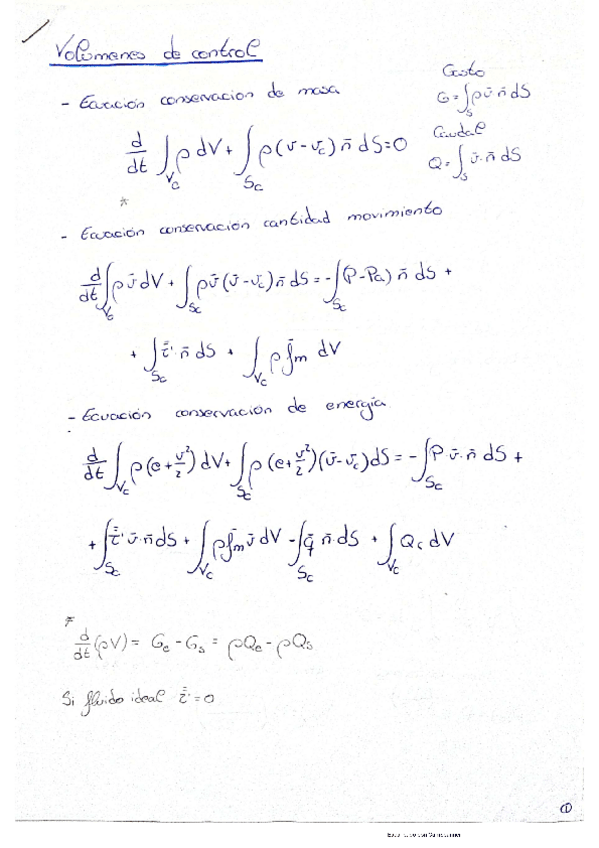 Volúmenes de control
- Ecuación conservación de masa
Gasto
G = ∫_S ρ v̄ n̄ dS
Caudal
Q = ∫_S v̄ · n̄ dS
d/dt ∫_Vc ρ dV + ∫_Sc ρ (v̄ - v̄c) n̄ dS = 0
*
- Ecuación conservación cantidad movimiento
d/dt ∫_Vc ρ v̄ dV + ∫_Sc ρ v̄ (v̄ - v̄c) n̄ dS = - ∫_Sc (P - Pa) n̄ dS +
+ ∫_Sc τ̿' · n̄ dS + ∫_Vc ρ f̄m dV
- Ecuación conservación de energía
d/dt ∫_Vc ρ (e + v²/2) dV + ∫_Sc ρ (e + v²/2) (v̄ - v̄c) dS = - ∫_Sc P · v̄ · n̄ dS +
+ ∫_Sc τ̿' · v̄ · n̄ dS + ∫_Vc ρ f̄m v̄ dV - ∫_Sc q̄ n̄ · dS + ∫_Vc Qc dV
*
d/dt (ρV) = Ge - Gs = ρQe - ρQs
Si fluido ideal τ̿' = 0
1